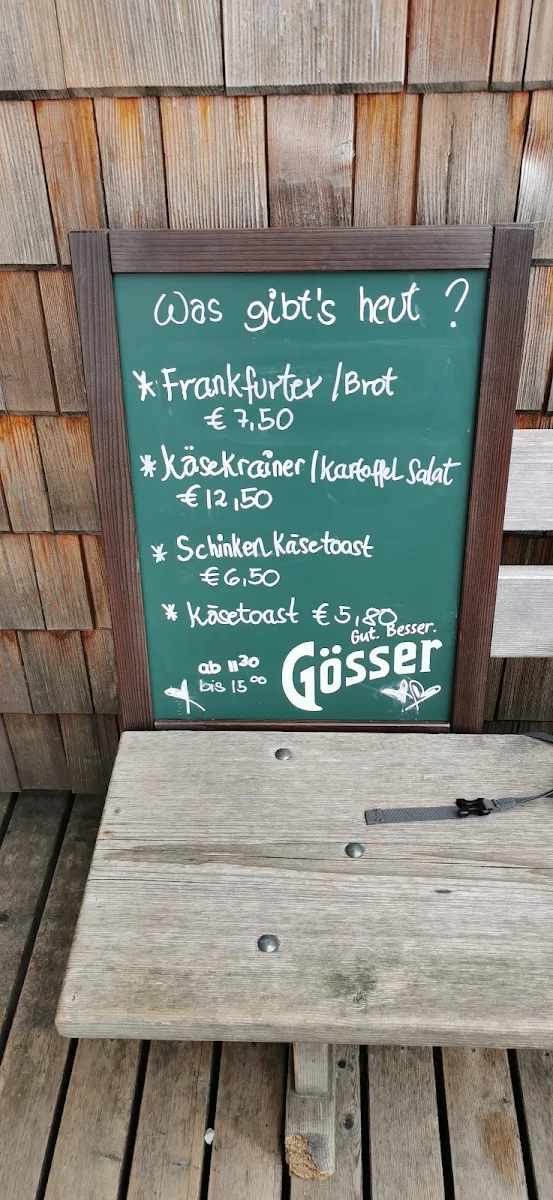 Was gibt's heut?
* Frankfurter / Brot
€ 7,50
* Käsekrainer / Kartoffel Salat
€ 12,50
* Schinken Käsetoast
€ 6,50
* Käsetoast € 5,80
Gut. Besser.
Gösser
ab 11³⁰
bis 15⁰⁰